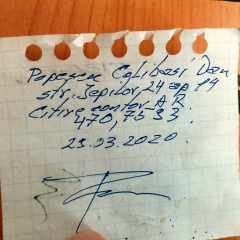 Popescu Calibasi Dan
str. Jepilor, 24 ap 19
Citire contor A.R.
470,7533.
23.03.2020